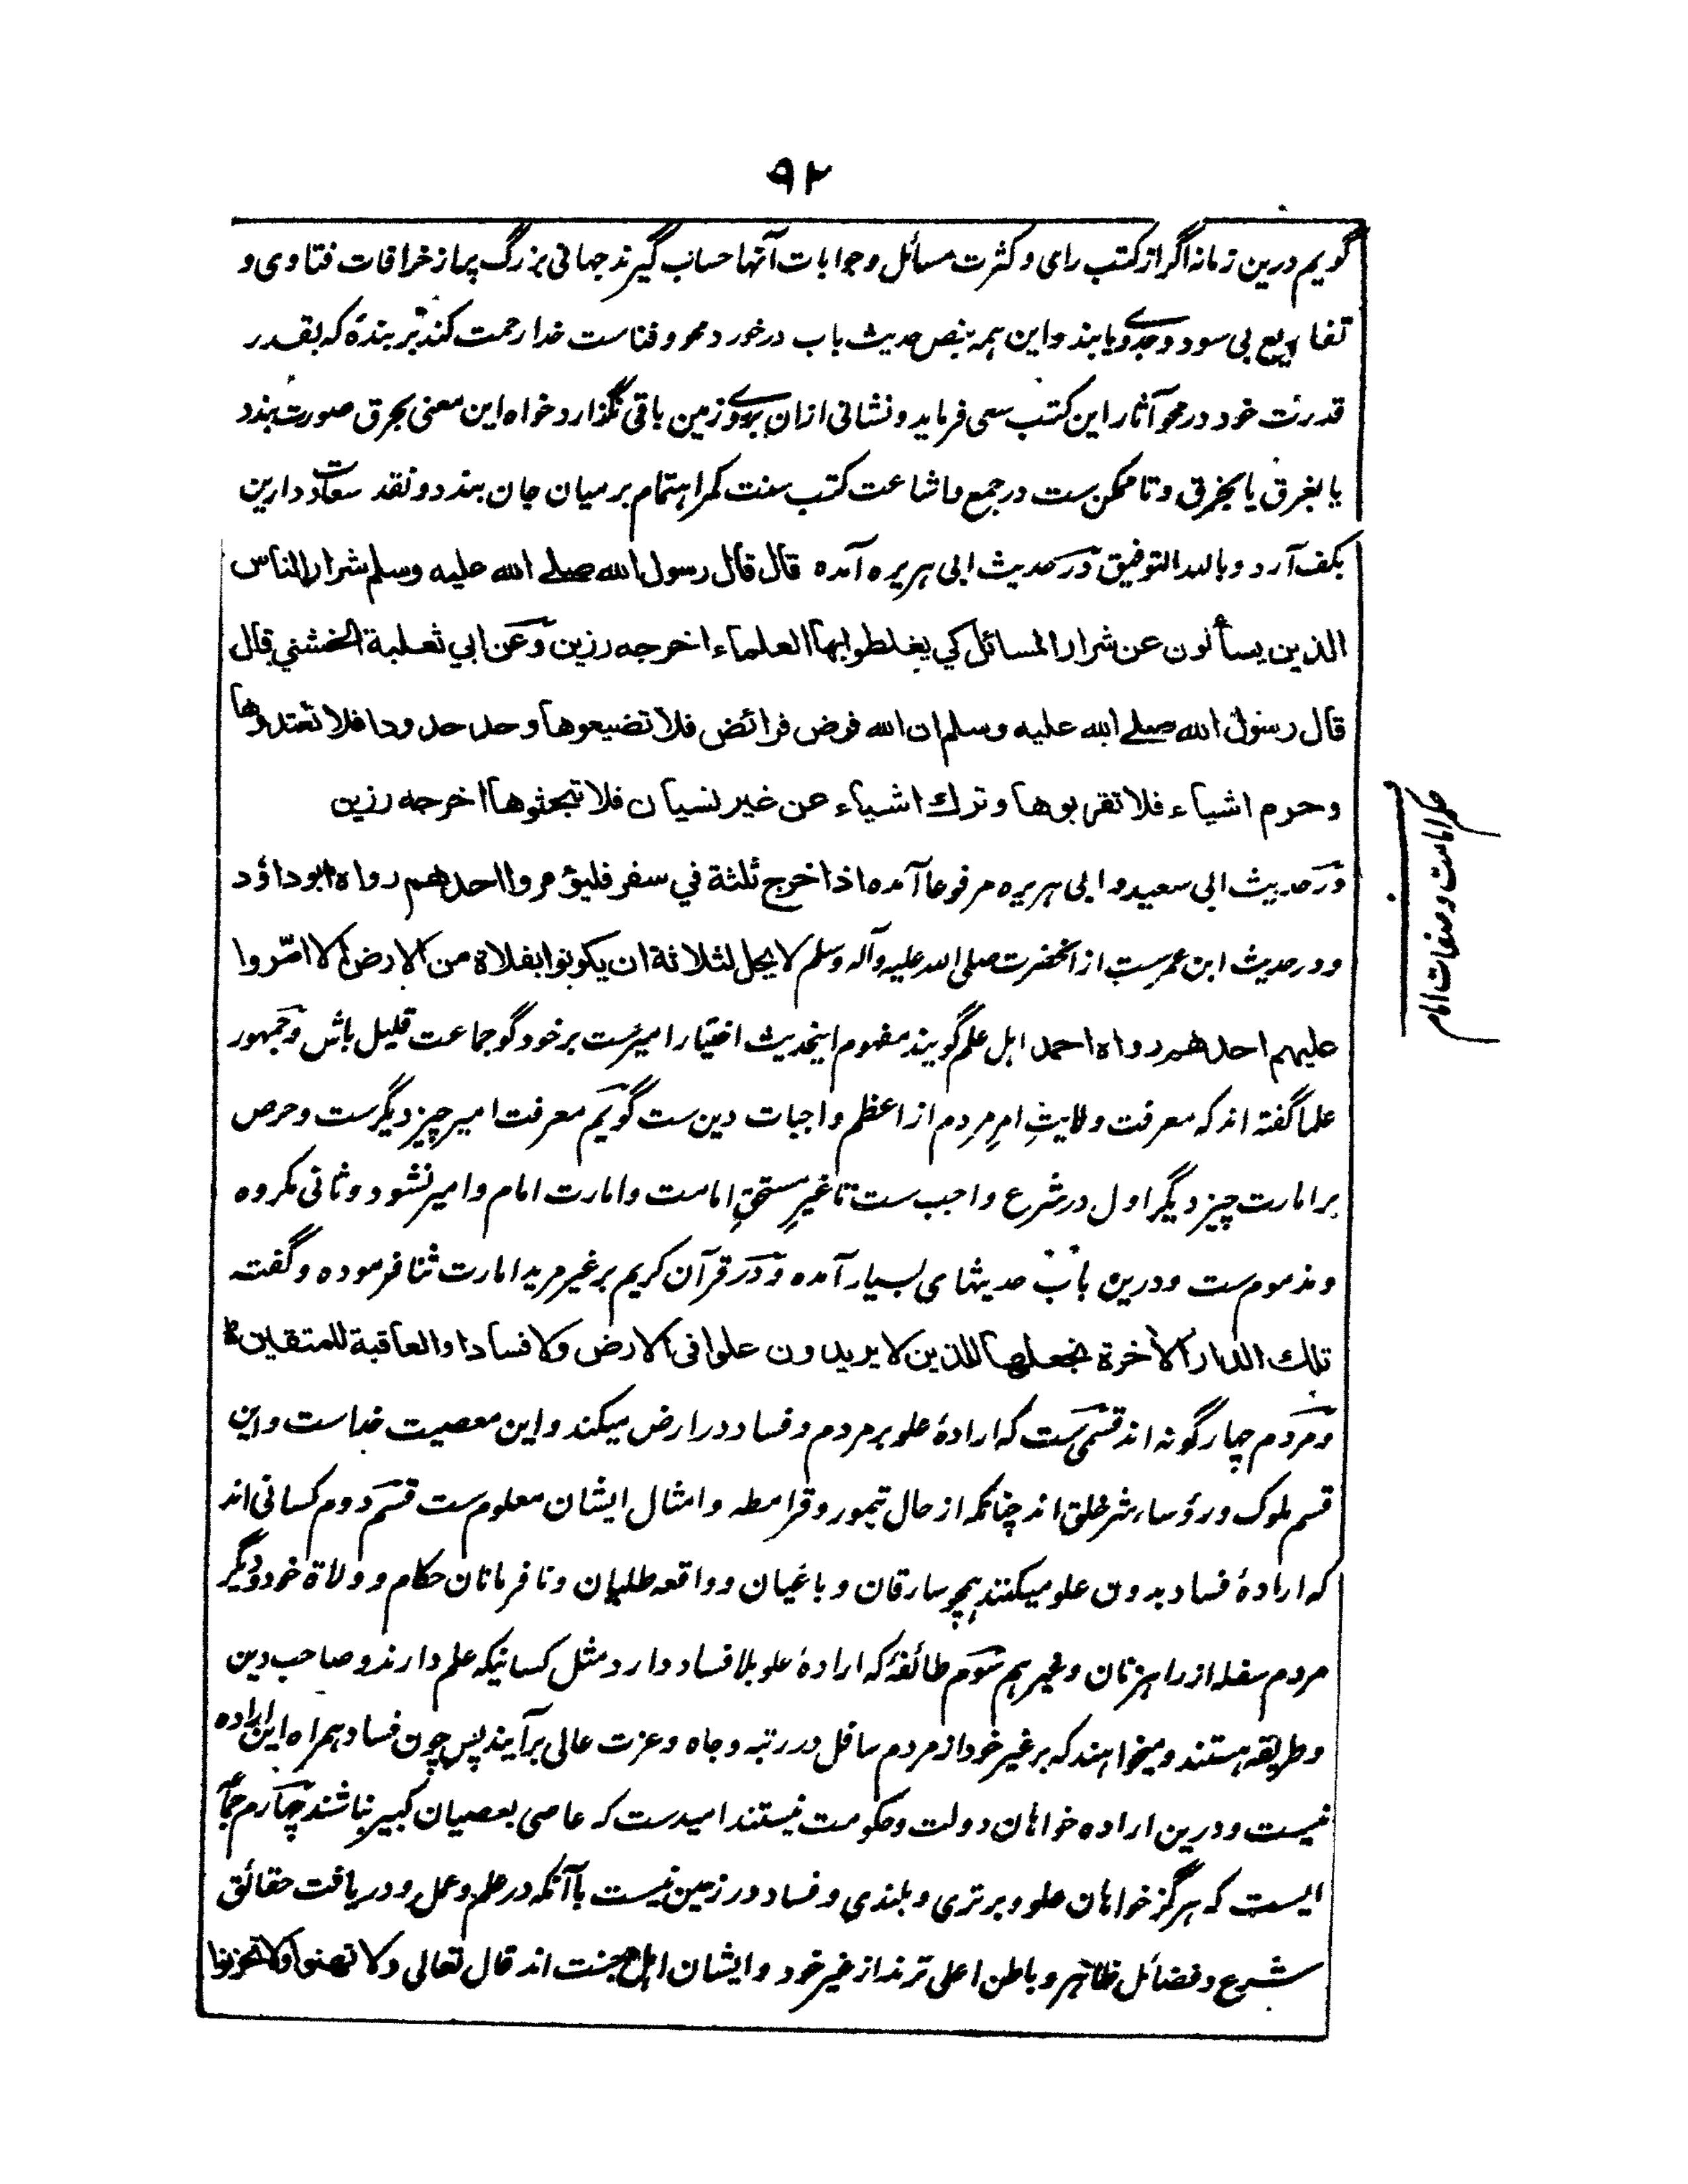 ۹۲
گویم درین زمانه اگر از کتب رای و کثرت مسائل و جوابات آنها حساب گیرند جهانی بزرگ پر از خرافات فتاوی و
تفاریع بی سود و جدوی یابند و این همه بنص حدیث باب درخورد محو و فناست خدا رحمت کند بر بندهٔ که بقدر
قدرت خود در محو آثار این کتب سعی فرماید و نشانی ازان برروی زمین باقی نگذارد خواه این معنی بحرق صورت بندد
یا بغرق یا بخرق و تا ممکن ست در جمع و اشاعت کتب سنت کمر اهتمام بر میان جان بندد و نقد سعادت دارین
بکف آرد و بالله التوفیق و در حدیث ابی هریره آمده قال قال رسول الله صلے الله علیه وسلم شرار الناس
الذین یسألون عن شرار المسائل کي یغلطوا بها العلماء اخرجه رزین و عن ابي ثعلبة الخشني قال
قال رسول الله صلے الله علیه وسلم ان الله فرض فرائض فلا تضیعوها و حد حدودا فلا تعتدوها
وحرم اشیاء فلا تقربوها وترك اشیاء عن غیر نسیان فلا تبحثوها اخرجه رزین
و در حدیث ابی سعید و ابی هریره مرفوعا آمده اذا خرج ثلثة في سفر فلیؤمروا احدهم رواه ابوداؤد
و در حدیث ابن عمر ست از آنحضرت صلی الله علیه و آله وسلم لا یحل لثلاثة ان یکونوا بفلاة من الارض الا امّروا
علیهم احدهم رواه احمد اهل علم گویند مفهوم اینحدیث اختیار امیرست بر خود گو جماعت قلیل باش و جمهور
علما گفته اند که معرفت ولایتِ امرِ مردم از اعظم واجبات دین ست گویم معرفت امیر چیز دیگرست و حرص
بر امارت چیز دیگر اول در شرع واجب ست تا غیرِ مستحقِ امامت و امارت امام و امیر نشود و ثانی مکروه
و مذموم ست و درین باب حدیثهای بسیار آمده و در قرآن کریم بر غیر مرید امارت ثنا فرموده و گفته
تلك الدار الآخرة نجعلها للذین لا یریدون علوا فی الارض ولا فسادا والعاقبة للمتقین
و مردم چهار گونه اند قسمی ست که ارادهٔ علو بر مردم و فساد در ارض میکند و این معصیت خداست و این
قسم ملوک و رؤساء شر خلق اند چنانکه از حال تیمور و قرامطه و امثال ایشان معلوم ست قسم دوم کسانی اند
که ارادهٔ فساد بدون علو میکنند همچو سارقان و باغیان و واقعه طلبان و نافرمانان حکام و ولاة خود و دیگر
مردم سفله از راهزنان و غیرهم سوم طائفهٔ که ارادهٔ علو بلا فساد دارد مثل کسانیکه علم دارند و صاحب دین
و طریقه هستند و میخواهند که بر غیر خود از مردم سافل در رتبه و جاه و عزت عالی برآیند پس چون فساد همراه این اراده
نیست و درین اراده خواهان دولت و حکومت نیستند امید ست که عاصی بعصیان کبیر نباشند چهارم جماعه
ایست که هرگز خواهان علو و برتری و بلندی و فساد در زمین نیست با آنکه در علم و عمل و دریافت حقائق
شرع و فضائل ظاهر و باطن اعلی ترند از غیر خود و ایشان اهل جنت اند قال تعالی ولا تهنوا ولا تحزنوا
و صفات امام